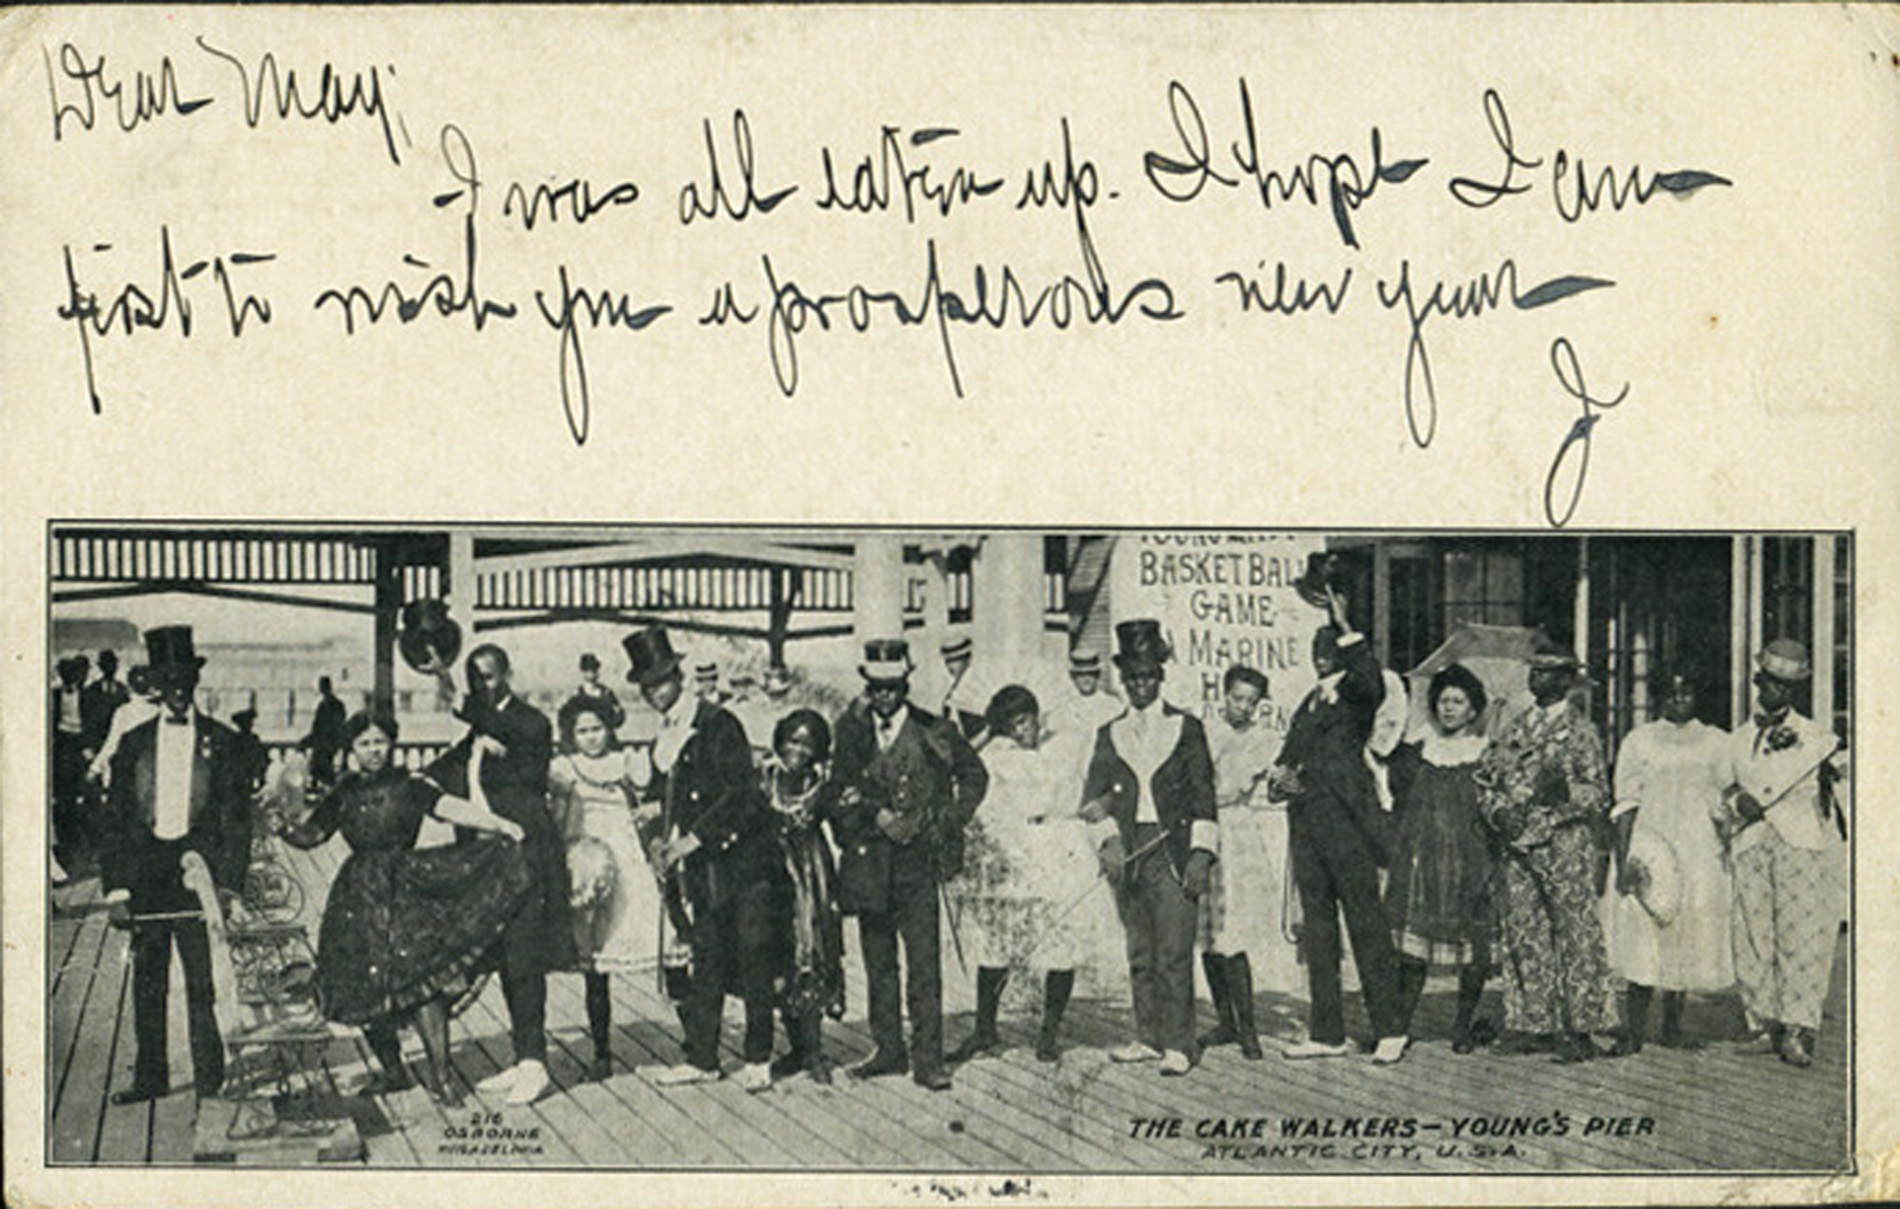 Dear May;
I was all eaten up. I hope I am
first to wish you a prosperous new year
J
BASKET BALL
GAME
A MARINE
216
OSBORNE
PHILADELPHIA
THE CAKE WALKERS – YOUNG'S PIER
ATLANTIC CITY, U.S.A.